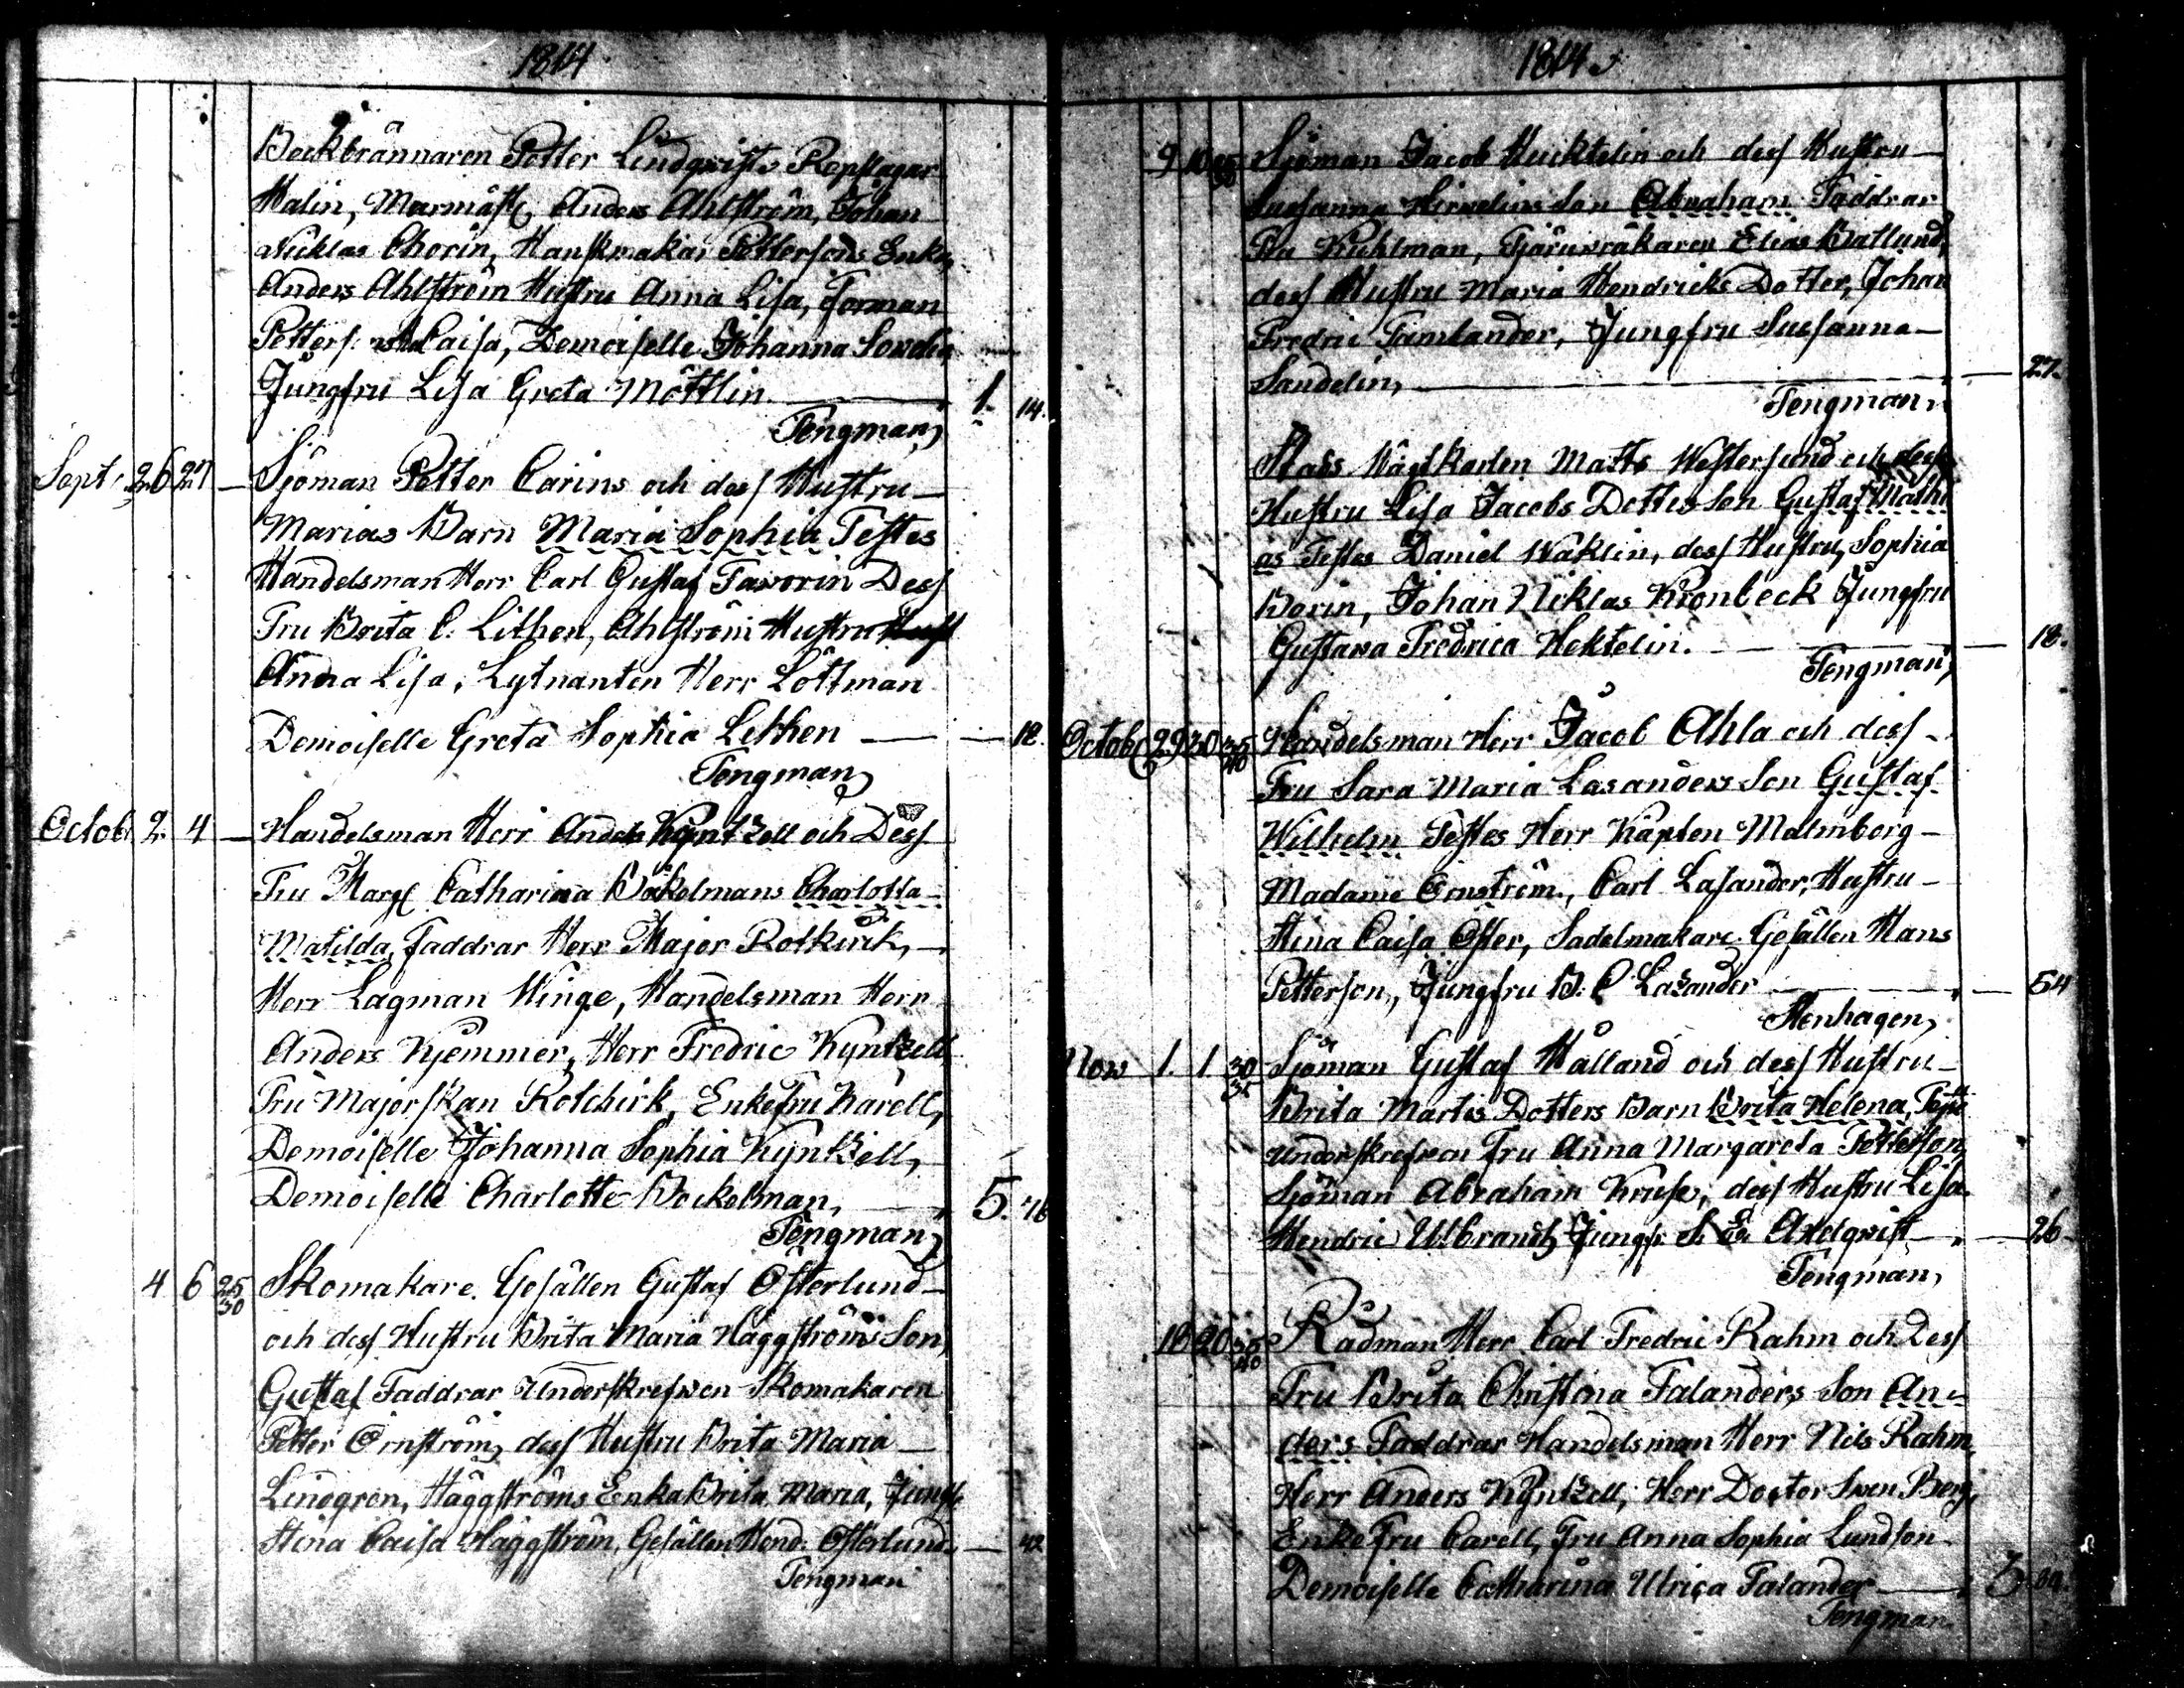 1814
Beckbrännaren Petter Lindqvists Repslagar
Malin, Anders Ahlström, Johan
Nicklas Chorin, Hanskmakar Pettersons Enka,
Anders Ahlström Hustru Anna Lisa, Forman
Petters. Caisa, Demoiselle Johanna
Jungfru Lisa Greta Möttlin 1. 14.
Tengman,
Sept: 26 27 — Sjöman Petter Carins och dess Hustru
Marias Barn Maria Sophia Testes
Handelsman Herr Carl Gustaf Favorin Dess
Fru Brita C. Lithen, Ahlström Hustru
Anna Lisa, Lytnanten Herr Lottman
Demoiselle Greta Sophia Lithen — 12.
Tengman,
Octob. 2. 4 — Handelsman Herr Anders Kyntzell och Dess
Fru Marg Catharina Böckelmans Charlotta
Matilda, Faddrar Herr Major Rotkirik,
Herr Lagman Winge, Handelsman Herr
Anders Kjemmer, Herr Fredric Kyntzell,
Fru Majorskan Rotchirk, Enkefru Karell,
Demoiselle Johanna Sophia Kyntzell,
Demoiselle Charlotte Bockelman, 5. 16
Tengman,
4 6 25/30 Skomakare Gesällen Gustaf Österlund
och dess Hustru Brita Maria Häggströms Son
Gustaf Faddrar Underskrefven Skomakaren
Petter Örnström, dess Hustru Brita Maria
Lindgren, Häggströms Enka Brita Maria, Jungfr
Stina Caisa Häggström, Gesällen Hend. Österlund — 42
Tengman
1814
9 10 Sjöman Jacob Hecktelin och dess Hustru
Susanna Hirvelins Son Abraham Faddrar
Fru Kuhlman, Tjäruvräkaren Elias Batlund,
dess Hustru Maria Hendricks Dotter, Johan
Fredric Famlander, Jungfru Susanna
Sandelin, — 27.
Tengman,
Stads Vagtkarlen Matts Westersund och dess
Hustru Lisa Jacobs Dotters Son Gustaf Mathi
as Testes Daniel Wäklin, dess Hustru, Sophia
Borin, Johan Niklas Kronbeck Jungfru
Gustava Fredrica Hektelin. — 18.
Tengman,
Octob 29 30 35/40 Handelsman Herr Jacob Ahla och dess
Fru Sara Maria Lasanders Son Gustaf
Wilhelm Testes Herr Kapten Malmborg
Madame Örnström, Carl Lasander, Hustru
Stina Caisa Öster, Sadelmakare Gesällen Hans
Petterson, Jungfru B. C. Lasander — 54
Stenhagen,
Nov 1. 1. 30/35 Sjöman Gustaf Wålland och dess Hustru
Brita Marts Dotters Barn Brita Helena,
Underskrefven Fru Anna Margareta Petterson,
Sjöman Abraham Kruse, dess Hustru Lisa
Hendric Ulbrandt, Jungfr S. E. Axelqvist — 26
Tengman,
18 20 35/40 Rådman Herr Carl Fredric Rahm och Dess
Fru Brita Christina Falanders, Son An-
ders Faddrar Handelsman Herr Nils Rahm,
Herr Anders Kyntzell, Herr Doctor Sven Berg,
Enkefru Carell, Fru Anna Sophia Lundson
Demoiselle Catharina Ulrica Falander — 3
Tengman